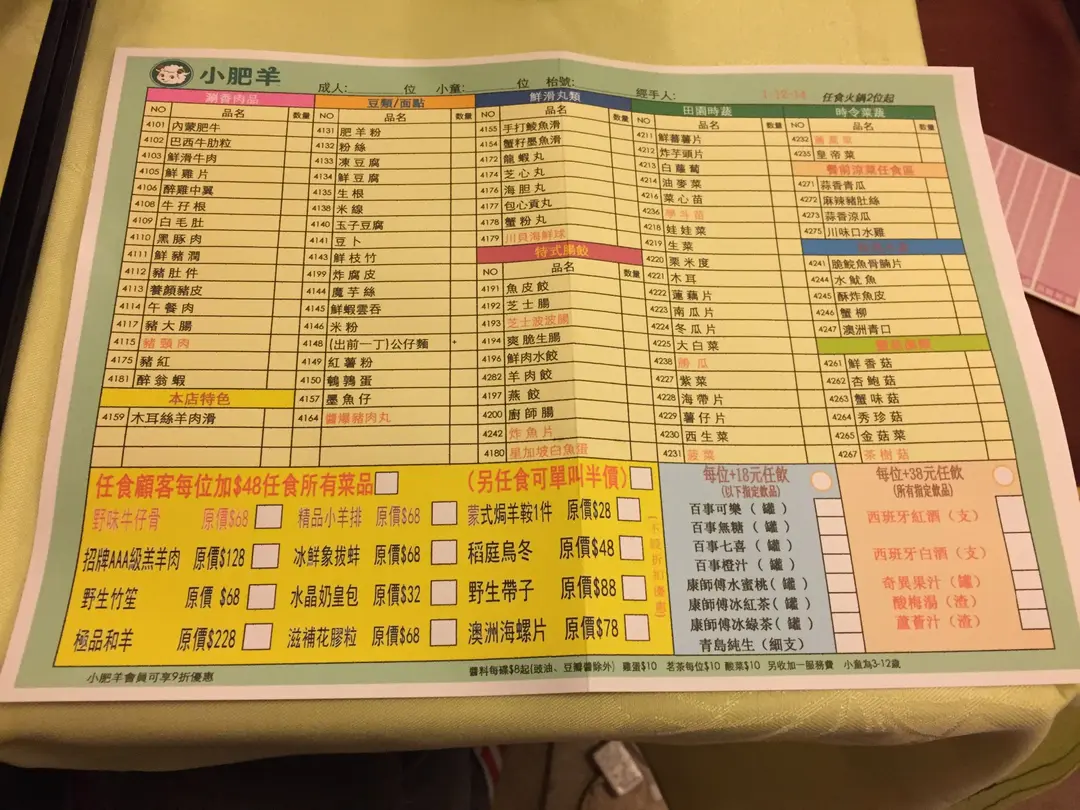 小肥羊
成人: 位 小童: 位 枱號: 經手人: 任食火鍋2位起
涮香肉品
NO 品名 數量
4101 內蒙肥牛
4102 巴西牛肋粒
4103 鮮滑牛肉
4105 鮮雞片
4106 醉雞中翼
4108 牛孖根
4109 白毛肚
4110 黑豚肉
4111 鮮豬潤
4112 豬肚件
4113 養顏豬皮
4114 午餐肉
4117 豬大腸
4115 豬頸肉
4175 豬紅
4181 醉翁蝦
本店特色
4159 木耳絲羊肉滑
豆類/面點
NO 品名 數量
4131 肥羊粉
4132 粉絲
4133 凍豆腐
4134 鮮豆腐
4135 生根
4138 米線
4140 玉子豆腐
4141 豆卜
4143 鮮枝竹
4199 炸腐皮
4144 魔芋絲
4145 鮮蝦雲吞
4146 米粉
4148 (出前一丁)公仔麵
4149 紅薯粉
4150 鵪鶉蛋
4157 墨魚仔
4164 醬爆豬肉丸
鮮滑丸類
NO 品名 數量
4155 手打鯪魚滑
4154 蟹籽墨魚滑
4172 龍蝦丸
4174 芝心丸
4176 海胆丸
4177 包心貢丸
4178 蟹粉丸
4179 川貝海鮮球
特式腸餃
NO 品名 數量
4191 魚皮餃
4192 芝士腸
4193 芝士波波腸
4194 爽脆生腸
4196 鮮肉水餃
4282 羊肉餃
4197 燕餃
4200 廚師腸
4242 炸魚片
4180 星加坡白魚蛋
田園時蔬
NO 品名 數量
4211 鮮蕃薯片
4212 炸芋頭片
4213 白蘿蔔
4214 油麥菜
4216 菜心苗
4236 學斗苗
4218 娃娃菜
4219 生菜
4220 粟米度
4221 木耳
4222 蓮藕片
4223 南瓜片
4224 冬瓜片
4225 大白菜
4238 勝瓜
4227 紫菜
4228 海帶片
4229 薯仔片
4230 西生菜
4231 菠菜
時令菜蔬
NO 品名 數量
4232
4235 皇帝菜
餐前涼菜任食區
4271 蒜香青瓜
4272 麻辣豬肚絲
4273 蒜香涼瓜
4275 川味口水雞
4241 脆鯇魚骨腩片
4244 水魷魚
4245 酥炸魚皮
4246 蟹柳
4247 澳洲青口
4261 鮮香菇
4262 杏鮑菇
4263 蟹味菇
4264 秀珍菇
4265 金菇菜
4267 茶樹菇
任食顧客每位加$48任食所有菜品 (另任食可單叫半價)
野味牛仔骨 原價$68 精品小羊排 原價$68 蒙式焗羊鞍1件 原價$28
招牌AAA級羔羊肉 原價$128 冰鮮象拔蚌 原價$68 稻庭烏冬 原價$48
野生竹笙 原價 $68 水晶奶皇包 原價$32 野生帶子 原價$88
極品和羊 原價$228 滋補花膠粒 原價$68 澳洲海螺片 原價$78
(不設折扣優惠)
每位+18元任飲
(以下指定飲品)
百事可樂(罐)
百事無糖(罐)
百事七喜(罐)
百事橙汁(罐)
康師傅水蜜桃(罐)
康師傅冰紅茶(罐)
康師傅冰綠茶(罐)
青島純生(細支)
每位+38元任飲
(所有指定飲品)
西班牙紅酒(支)
西班牙白酒(支)
奇異果汁(罐)
酸梅湯(渣)
蘆薈汁(渣)
小肥羊會員可享9折優惠
醬料每碟$8起(豉油、豆瓣醬除外) 雞蛋$10 茗茶每位$10 酸菜$10 另收加一服務費 小童為3-12歲